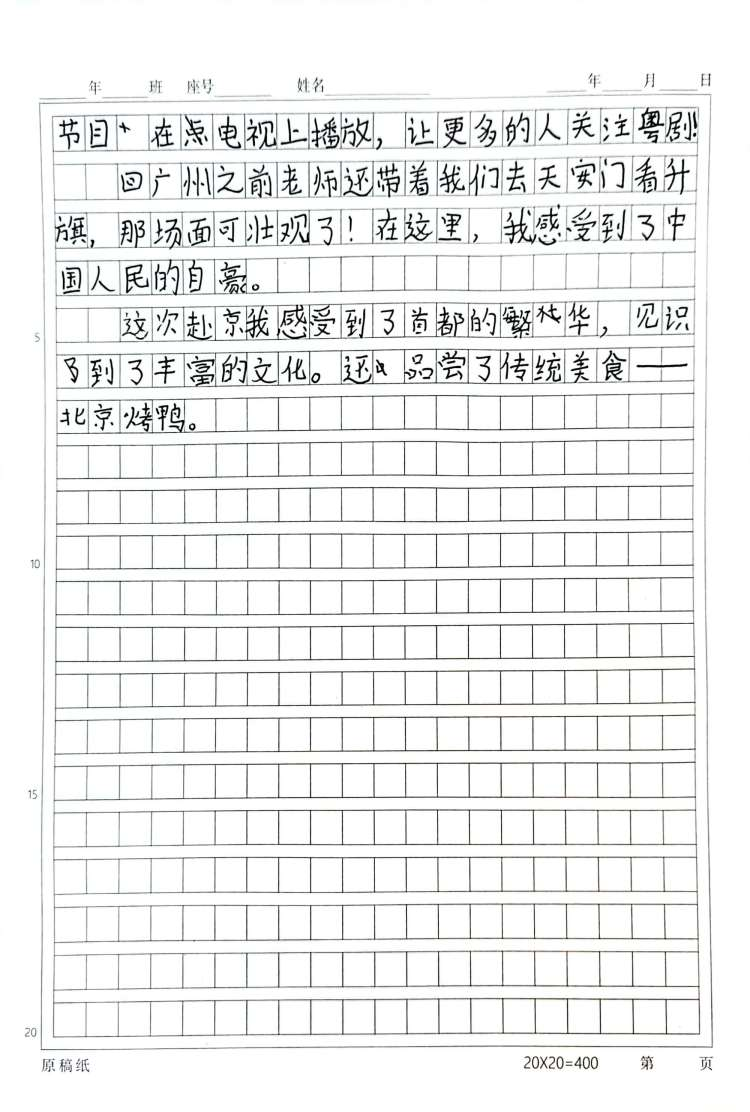 年 班 座号 姓名 年 月 日
节目 在点电视上播放，让更多的人关注粤剧！
回广州之前老师还带着我们去天安门看升
旗，那场面可壮观了！在这里，我感受到了中
国人民的自豪。
这次赴京我感受到了首都的繁华，见识
5
了到了丰富的文化。还 品尝了传统美食——
北京烤鸭。
10
15
20
原稿纸 20X20=400 第 页